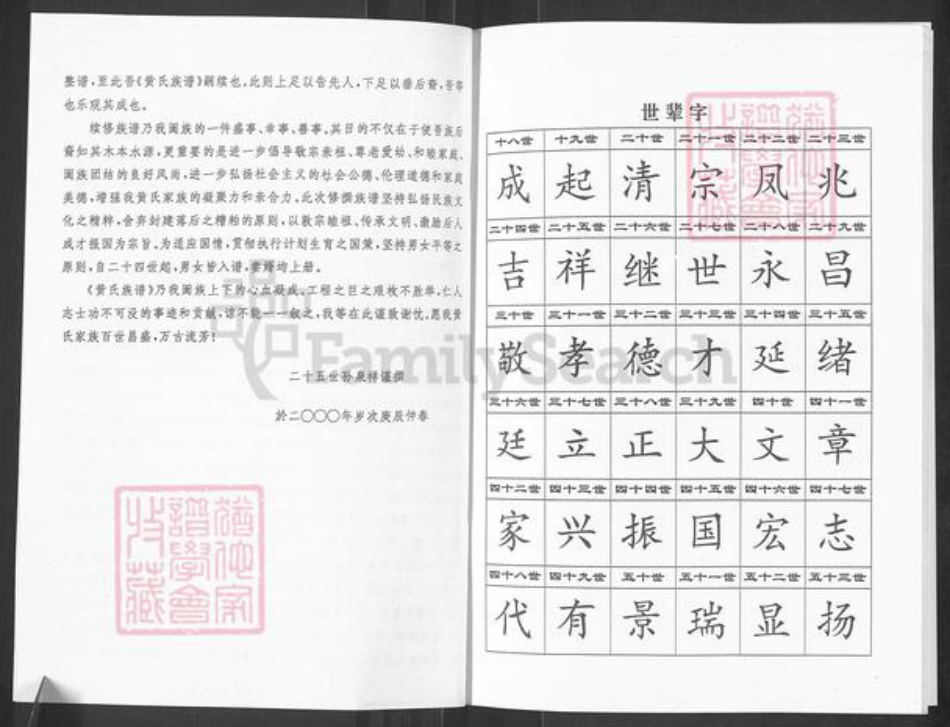 整谱，至此吾《黄氏族谱》嗣续也。此则上足以告先人，下足以垂后裔，吾等
也乐观其成也。
续修族谱乃我阖族的一件盛事、幸事、善事。其目的不仅在于使吾族后
裔知其木本水源，更重要的是进一步倡导敬宗亲祖、尊老爱幼、和睦家庭、
阖族团结的良好风尚，进一步弘扬社会主义的社会公德、伦理道德和家庭
美德，增强我黄氏家族的凝聚力和亲合力。此次修撰族谱坚持弘扬民族文
化之精粹，舍弃封建落后之糟粕的原则，以敦宗睦祖、传承文明、激励后人
成才报国为宗旨。为适应国情，贯彻执行计划生育之国策，坚持男女平等之
原则，自二十四世起，男女皆入谱，妻婿均上册。
《黄氏族谱》乃我阖族上下的心血凝成。工程之巨之艰枚不胜举，仁人
志士功不可没的事迹和贡献，谅不能一一叙之，我等在此谨致谢忱。愿我黄
氏家族百世昌盛，万古流芳！
二十五世孙泉祥谨撰
於二〇〇〇年岁次庚辰仲春
FamilySearch
世辈字
十八世 十九世 二十世 二十一世 二十二世 二十三世
成 起 清 宗 凤 兆
二十四世 二十五世 二十六世 二十七世 二十八世 二十九世
吉 祥 继 世 永 昌
三十世 三十一世 三十二世 三十三世 三十四世 三十五世
敬 孝 德 才 延 绪
三十六世 三十七世 三十八世 三十九世 四十世 四十一世
廷 立 正 大 文 章
四十二世 四十三世 四十四世 四十五世 四十六世 四十七世
家 兴 振 国 宏 志
四十八世 四十九世 五十世 五十一世 五十二世 五十三世
代 有 景 瑞 显 扬